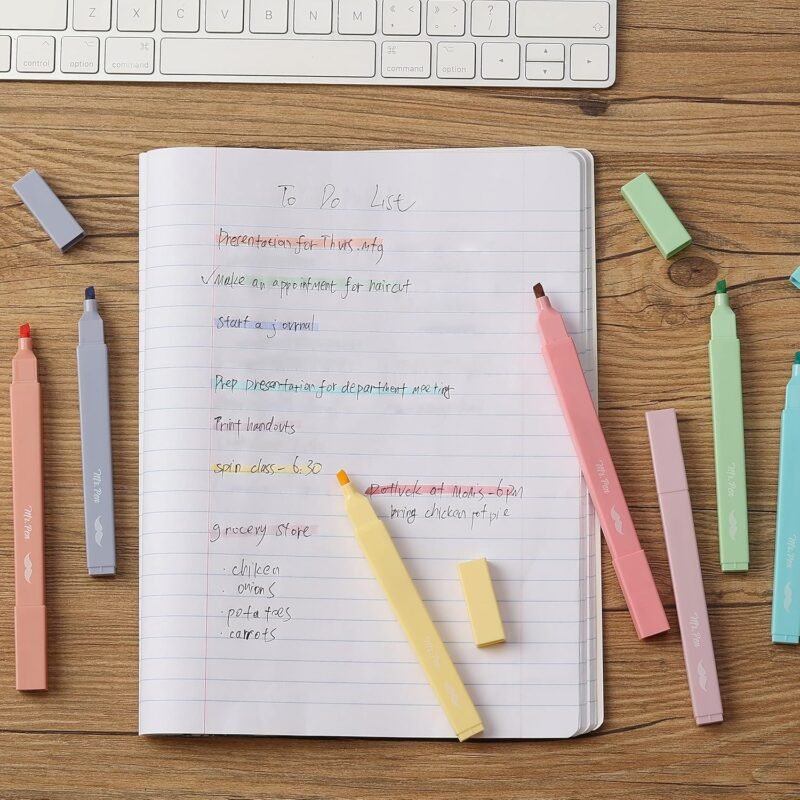 Z X C V B N M < > ? /
control option command command option
To Do List
Presentation for Thurs. mtg
✓Make an appointment for haircut
Start a journal
Prep presentation for department meeting
Print handouts
spin class - 6:30
potluck at Moms - 6pm
bring chicken potpie
grocery store
· chiken
· onions
· potatoes
· carrots
Mr. Pen
Mr. Pen
Mr. Pen
Mr. Pen
Mr. Pen
Mr. Pen